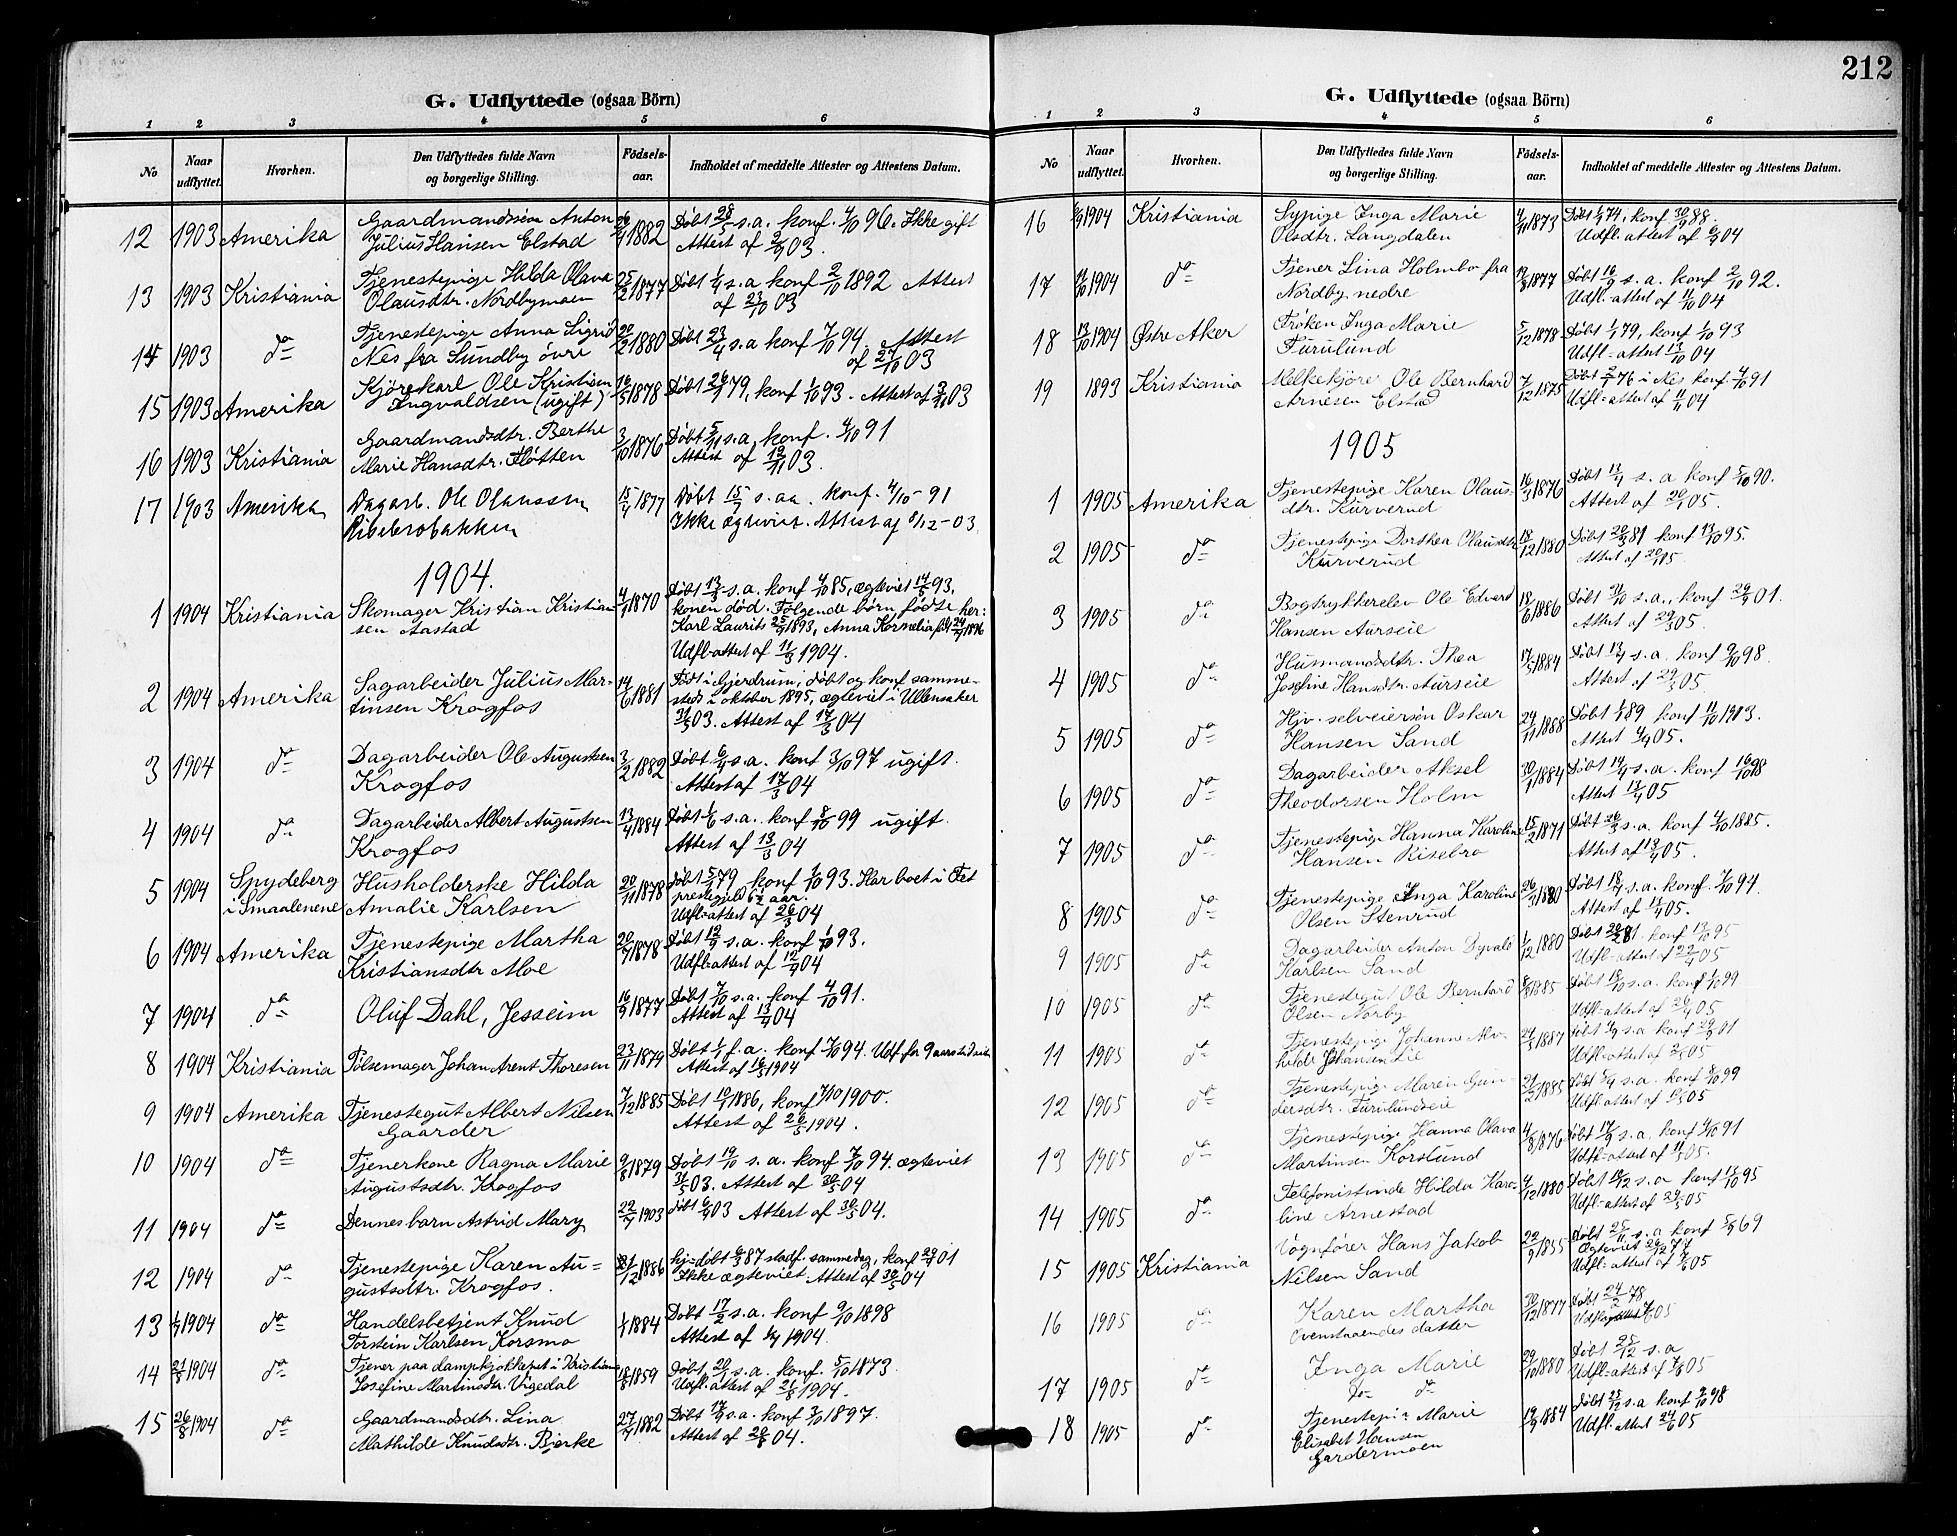 G. Udflyttede (ogsaa Börn)
1 2 3 4 5 6
No
Naar udflyttet.
Hvorhen.
Den Udflyttedes fulde Navn og borgerlige Stilling.
Födselsaar.
Indholdet af meddelte Attester og Attestens Datum.
12 1903 Amerika Gaardmandssön Anton 1882 Döbt 28/5 s.a. konf. 4/10 96. Ikke gift
Julius Hansen Elstad Attest af 2/9 03.
13 1903 Kristiania Tjenestepige Hilda Olava 25/2 1877 Döbt 1/4 s.a konf 2/10 1892 Attest
Olausdtr. Nordbymoen af 23/10 03
14 1903 do Tjenestepige Anna Sigrid 22/2 1880 Döbt 23/4 s.a konf 7/10 94. Attest
Nes fra Sundby övre af 27/10 03
15 1903 Amerika Kjörekarl Ole Kristian 1878 Döbt 26/1 79, konf 1/10 93. Attest af 3/11 03
Ingvaldsen (ugift)
16 1903 Kristiania Gaardmandsdtr. Berthe 3/10 1876 Döbt 5/11 s.a, konf. 4/10 91
Marie Hansdtr. Fløtten Attest af 12/11 03.
17 1903 Amerika Dagarb. Ole Olaussen 15/4 1877 Döbt 15/7 s.aa. konf. 4/10-91
Ribebrobakken Ikke ægteviet. Attest af /12-03
1904.
1 1904 Kristiania Skomager Kristian Kristian- 4/1 1870 Döbt 13/3 s.a. konf 4/10 85, ægteviet 14/5 93,
sen Aastad konen död. Følgende børn fødte her:
Karl Laurits 25/9 1893, Anna Kornelia föd 24/9 1896
Udfl-attest af 11/3 1904.
2 1904 Amerika Sagarbeider Julius Mar- 14/6 1881 Født i Gjerdrum, döbt og konf samme-
tinsen Krogfos steds i oktober 1895, ægteviet i Ullensaker
31/5 03. Attest af 17/3 04
3 1904 do Dagarbeider Ole Augustsen 3/2 1882 Döbt 6/4 s.a. konf 3/10 97 ugift.
Krogfos Attest af 17/3 04
4 1904 do Dagarbeider Albert Augustsen 13/4 1884 Döbt 1/6 s.a. konf 8/10 99 ugift.
Krogfos Attest af 13/3 04
5 1904 Spydeberg Husholderske Hilda 20/11 1878 döbt 5/1 79 konf 1/10 93. Har boet i Fet
i Smaalenene Amalie Karlsen prestegjeld 6½ aar.
Udfl-attest af 26/3 04
6 1904 Amerika Tjenestepige Martha 1878 Döbt 12/9 s.a. konf 1/10 93.
Kristiansdtr Moe Udfl-attest af 12/4 04
7 1904 do Oluf Dahl, Jesseim 16/9 1877 Döbt 7/10 s.a. konf 4/10 91.
Attest af 13/4 04
8 1904 Kristiania Pølsemager Johan Arent Thoresen 23/11 1879 Döbt 1/1 f.a. konf 7/10 94. Udf. for 9 aar siden
Attest af 16/3 1904
9 1904 Amerika Tjenestegut Albert Nilsen 7/12 1885 Döbt 10/1 1886, konf 7/10 1900.
Gaarder Attest af 26/5 1904.
10 1904 do Tjenerkone Ragna Marie 9/8 1879 Döbt 19/10 s.a. konf 7/10 94. ægteviet
Augustsdtr. Krogfos 31/5 03. Attest af 30/5 04
11 1904 do Dennes barn Astrid Mary 22/7 1903 döbt 6/9 03 Attest af 30/5 04.
12 1904 do Tjenestepige Karen Au- 21/12 1886 hj-döbt 6/3 87 stadf. sammedag, konf 29/9 01
gustsdtr. Krogfos. Ikke ægteviet. Attest af 30/5 04
13 1904 do Handelsbetjent Knud 1/1 1884 Döbt 17/2 s.a. konf 9/10 1898
Torstein Karlsen Korsmo Attest af 1904.
14 21/8 1904 do Tjener paa dampkjøkkenet i Kristiania 1859 Döbt 26/1 s.a. konf. 5/10 1873.
Josefine Martinsdtr. Vigedal Udfl-attest af 21/8 1904.
15 26/8 1904 do Gaardmandsdtr. Lina 27/7 1882 Döbt 17/9 s.a. konf 3/10 1897.
Mathilde Knudsdtr. Bjerke Attest af 26/8 04.
212
G. Udflyttede (ogsaa Börn)
1 2 3 4 5 6
No
Naar udflyttet.
Hvorhen.
Den Udflyttedes fulde Navn og borgerlige Stilling.
Födselsaar.
Indholdet af meddelte Attester og Attestens Datum.
16 1904 Kristiania Sypige Inga Marie 4/11 1873 Döbt 1/1 74, konf 30/9 88.
Olsdtr. Langdalen Udfl.-attest af 6/9 04
17 11/10 1904 do Tjener Lina Holmbo fra 19/8 1877 Döbt 16/9 s.a. konf 2/10 92.
Nordby nedre Udfl.-attest af 11/10 04
18 13/10 1904 Østre Aker Frøken Inga Marie 5/12 1878 Döbt 1/1 79, konf 1/10 93
Furulund Udfl-attest 13/10 04
19 1893 Kristiania Melkekjører Ole Bernhard 7/12 1875 Döbt 2/1 76 i Nes konf 4/10 91
Arnesen Elstad Udfl-attest af 11/11 04
1905
1 1905 Amerika Tjenestepige Karen Olaus- 16/2 1876 Döbt 13/4 s. a konf 5/10 90.
dtr. Kurverud Attest af 20/1 05.
2 1905 do Tjenestepige Dorthea Olausdtr 18/12 1880 Döbt 20/3 81 konf 13/10 95.
Kurverud Attest af 20/1 05
3 1905 do Bogtrykkerelev Ole Edvard 18/6 1886 Döbt 3/10 s.a., konf 29/9 01.
Hansen Aurseie Attest af 29/3 05.
4 1905 do Husmandsdtr. Thea 17/3 1884 Döbt 13/4 s.a. konf 9/10 98.
Josefine Hansdtr. Aurseie Attest af 29/3 05.
5 1905 do Hjv. selveiersön Oskar 24/11 1888 Döbt 1/1 89 konf 11/10 1903.
Hansen Sand Attest 4/4 05.
6 1905 do Dagarbeider Aksel 30/1 1884 Döbt 14/4 s.a. konf 16/10 98
Theodorsen Holm Attest 13/4 05
7 1905 do Tjenestepige Hanna Karoline 15/2 1871 Döbt 26/3 s.a. konf 4/10 1885.
Hansen Risebro Attest af 13/4 05.
8 1905 do Tjenestepige Inga Karoline 1880 Döbt 18/4 s.a. konf. 7/10 94.
Olsen Stenrud Attest af 13/4 05.
9 1905 do Dagarbeider Anton Dyvald 1/12 1880 Döbt 20/2 81 konf 13/10 95
Karlsen Sand Udfl-attest af 22/4 05
10 1905 do Tjenestegut Ole Bernhard 1885 Döbt 18/10 s.a. konf 1/10 99
Olsen Norby Udfl-attest af 26/4 05
11 1905 do Tjenestepige Johanne 1887 döbt s.a konf 29/9 01
Johansen Lie Udfl-attest af 05
12 1905 do Tjenestepige Maren Gun- 1885 döbt 5/4 s.a konf 8/10 99
dersdtr. Furulundseie Udfl-attest af 05
13 1905 do Tjenestepige Hanna Olava 4/8 1876 döbt 17/9 s.a. konf 4/10 91
Martinsen Korslund Udfl-attest af 11/5 05.
14 1905 do Telefonistinde Hilda Karo- 4/12 1880 Döbt /12 s.a konf 13/10 95
line Arnestad Udfl-attest af 29/5 05
15 1905 Kristiania Vognfører Hans Jakob 22/9 1855 Döbt 25/11 s.a konf 5/9 69
Nilsen Sand Ægteviet 26/12 77
Udfl-attest af 7/6 05
16 1905 do Karen Martha 30/12 1877 Döbt 24/2 78
Ovenstaaendes datter Udfl attest 7/6 05
17 1905 do Inga Marie 29/10 1880 Döbt 25/12 s.a
do do Udfl-attest af 7/6 05
18 1905 do Tjenestepi Marie 19/9 1884 Döbt s.a konf 9/10 98
Elisabet Hansen Udfl-attest 24/6 05
Gardermoen